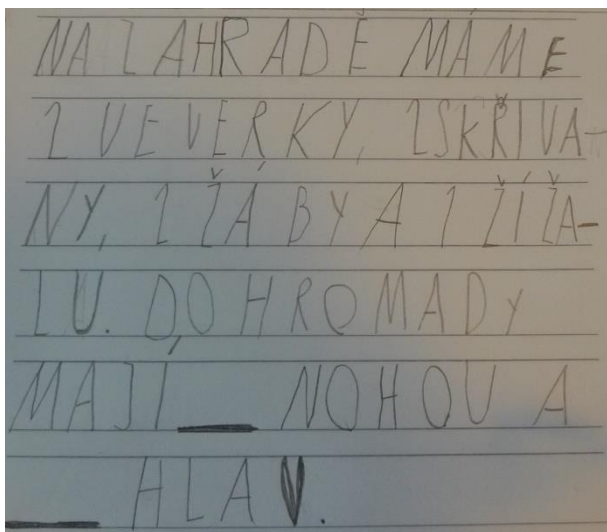 NA ZAHRADĚ MÁME
2 VEVERKY, 2 SKŘIVA-
NY, 2 ŽÁBY A 1 ŽÍŽA-
LU. DOHROMADY
MAJÍ __ NOHOU A
__ HLAV.